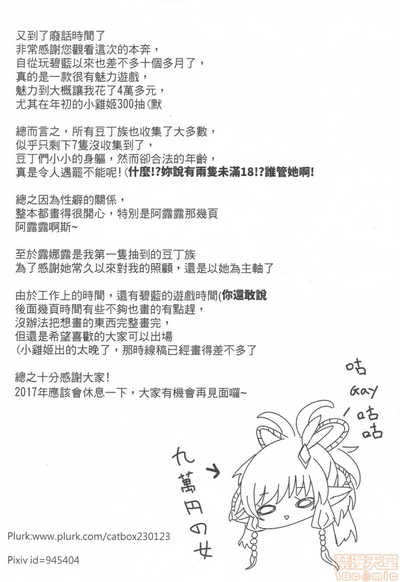 又到了廢話時間了
非常感謝您觀看這次的本奔，
自從玩碧藍以來也差不多十個多月了，
真的是一款很有魅力遊戲，
魅力到大概讓我花了4萬多元，
尤其在年初的小雞姬300抽(默
總而言之，所有豆丁族也收集了大多數，
似乎只剩下7隻沒收集到了，
豆丁們小小的身軀，然而卻合法的年齡，
真是令人遇罷不能呢!(什麼!?妳說有兩隻未滿18!?誰管她啊!
總之因為性癖的關係，
整本都畫得很開心，特別是阿露露那幾頁
阿露露啊斯~
至於露娜露是我第一隻抽到的豆丁族
為了感謝她常久以來對我的照顧，還是以她為主軸了
由於工作上的時間，還有碧藍的遊戲時間(你還敢說
後面幾頁時間有些不夠也畫的有點趕，
沒辦法把想畫的東西完整畫完，
但還是希望喜歡的大家可以出場
(小雞姬出的太晚了，那時線稿已經畫得差不多了
總之十分感謝大家!
2017年應該會休息一下，大家有機會再見面囉~
咕
Gay
咕
咕
九萬円の女
Plurk:www.plurk.com/catbox230123
Pixiv id=945404
禁漫天堂
18comic